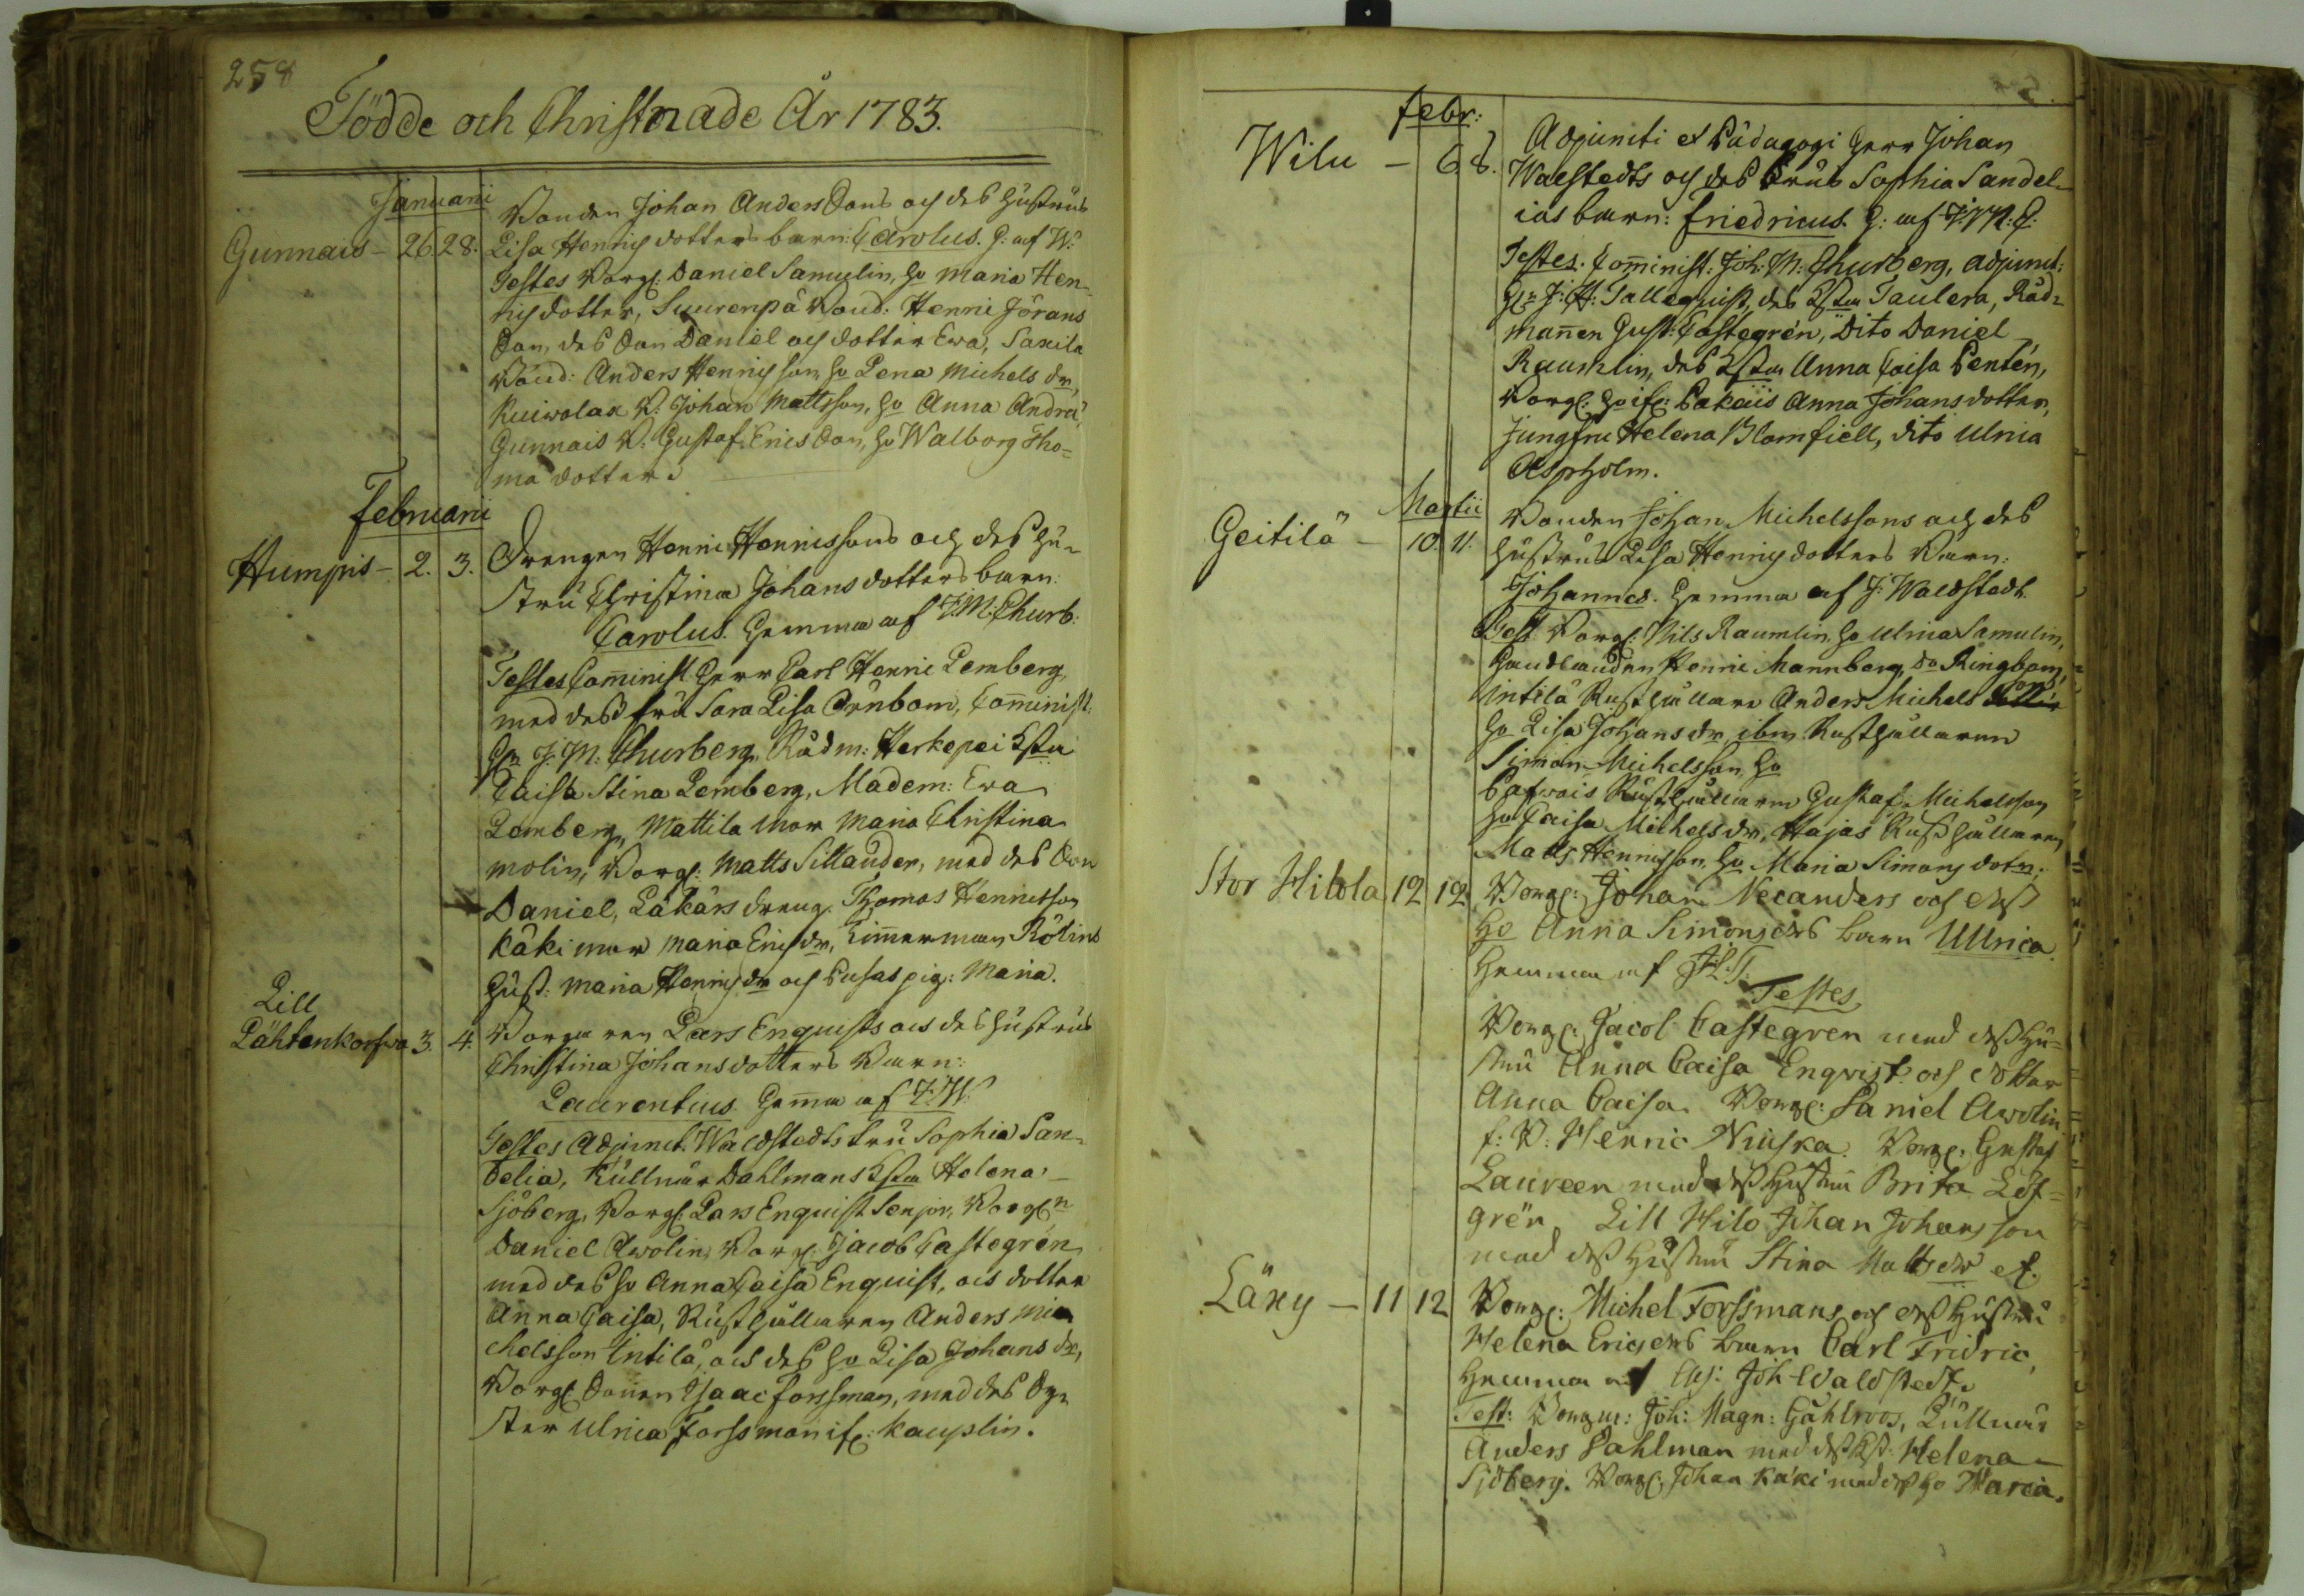 258
Födde och Christnade År 1783.
Januarii
Gunnais - 26. 28.
Bonden Johan Anders Sons och des hustrus
Lisa Henrichsdotters barn: Carolus. G: af W:
Testes Borg: Daniel Samulin, ho Maria Hen-
richsdotter, Suurenpä bond: Henric Jörans
Son, des Son Daniel och dotter Ewa, Saxila
Bond: Anders Henrichson, ho Lena Michels dr,
Kuiwolax B. Johan Mattsson, ho Anna
Gunnais B. Gustaf Erics Son, ho Walborg Tho-
mä dotter.
Februarii
Humpis - 2. 3.
Drengen Henric Henricssons och des hu-
stru Christina Johans dotters barn:
Carolus. Hemma af J.M. Churb:
Testes Comminist Herr Carl Henric Lemberg,
med dess fru Sara Lisa Örnbom, Comminist:
Hr J. M. Churberg, Rådm: Herkepei Hstu
Caisa Stina Lemberg, Madem: Ewa
Lemberg, Mattila Mor Maria Christina
Molin, Borg: Matts Sillander, med des Son
Daniel, Läkärs dreng. Thomas Henricsson
Käki mor Maria Erichsdr, Timmerman Rölins
Hust: Maria Henrichsdr och pig: Maria.
Lill
Lähtenkorfwa 3. 4.
Borgaren Lars Enquists och des hustrus
Christina Johansdotters Barn:
Laurentius. Hemma af J:W:
Testes Adjunct. Waldstedts fru Sophia San-
delia, Dahlmans Hstu Helena
Sjöberg, Borg: Lars Enquist Senjor, Borgn
Daniel Awolin, Borg: Jacob Castegrén
med des ho Anna Caisa Enquist, och dotter
Anna Caisa, Rusthållaren Anders Mi-
chelsson Intilä, och des ho Lisa Johans dr,
Borg Sonen Isaac Forssman, med des Sy-
ster Ulrica Forssman Kauplin.
Febr:
Wilu - 6. 8.
Adjuncti et Pädagogi Herr Johan
Walstedts och des frus Sophia Sandel-
ias barn: Friedricus. G: af J:M:C:
Testes. Comminist: Joh: M: Churberg, Adjunct:
Hr J: H: Tallequist, des Hstu Taulera, Råd-
mannen Gust: Castegrén, Dito Daniel
Raumlin, des Hstu Anna Caisa Pentén,
Borg: Pakais Anna Johansdotter,
Jungfru Helena Blomfiell, dito Ulrica
Aspholm.
Martii
Geitilä - 10. 11.
Bonden Johan Michelssons och des
hustrus Lisa Henrichsdotters Barn:
Johannes. Hemma af J: Waldstedt.
Test: Borg: Nils Raumlin, ho Ulrica Samulin,
Handlanden Henric Mannberg, do Ringbom,
Intilä Rusthållare Anders Michels son
ho Lisa Johans dr, ibm Rusthållaren
Simon Michelsson ho
Pafwois Rusthållaren Gustaf Michelsson
ho Caisa Michelsdr, Hajas Rusthållaren
Matts Henricsson, ho Maria Simons dotr.
Stor Hilola 12 12
Borg: Johan Necanders och dess
ho Anna Simonsdrs barn Ullrica
Hemma af J.H.T.
Testes
Borg: Jacob Castegren med dess hu-
stru Anna Caisa Enqvist och dotter
Anna Caisa. Borg: Daniel Awolin.
f: B: Henric Niuska. Borg: Gustaf
Laureen med dess hustru Brita Löf-
grén. Lill Hilo Johan Johansson
med dess hustru Stina Matsdr
Läxy - 11 12
Borg: Michel Forssmans och dess hustru
Helena Ericsdrs barn Carl Fridric,
Hemma af Adj: Joh Waldstedt.
Test: Borgm: Joh: Magn: Gåhlroos,
Anders Dahlman med dess Hst: Helena
Sjöberg. Borg: Johan Käki med dess ho Maria.